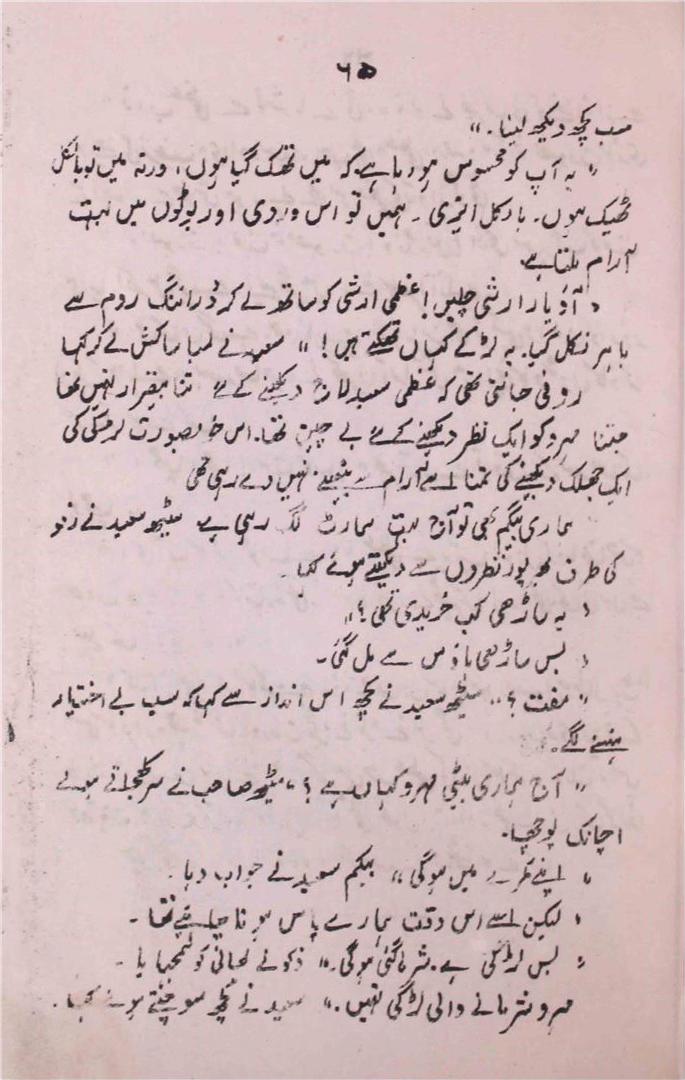 ۶۵
سب کچھ دیکھ لینا۔"
"یہ آپ کو محسوس ہو رہا ہے کہ میں تھک گیا ہوں، ورنہ میں تو بالکل
ٹھیک ہوں۔ بارکل ایزی۔ ہمیں تو اس وردی اور بوٹوں میں بہت
آرام ملتا ہے۔
"آؤ یار ارشی چلیں! عظمی ارشی کو ساتھ لے کر ڈرائنگ روم سے
باہر نکل گیا۔ یہ لڑکے کہاں تھکتے ہیں!" سعید نے لمبا سا کش لے کر کہا
روفی جانتی تھی کہ عظمی سعید لاج دیکھنے کے لئے اتنا بیقرار نہیں تھا
جتنا مہرو کو ایک نظر دیکھنے کے لئے بے چین تھا۔ اس خوبصورت لڑکی کی
ایک جھلک دیکھنے کی تمنا اسے آرام سے بیٹھنے نہیں دے رہی تھی
ہماری بیگم بھی تو آج بہت سمارٹ لگ رہی ہے سیٹھ سعید نے
کی طرف بھرپور نظروں سے دیکھتے ہوئے کہا۔
"یہ ساڑھی کب خریدی تھی؟"
"بس ساڑھی ہاؤس سے مل گئی۔
"مفت؟" سیٹھ سعید نے کچھ اس انداز سے کہا کہ سب بے اختیار
ہنسنے لگے۔
"آج ہماری بیٹی مہرو کہاں ہے؟" سیٹھ صاحب نے سر کھجلاتے ہوئے
اچانک پوچھا۔
"اپنے کمرے میں ہوگی" بیگم سعید نے جواب دیا۔
"لیکن اسے اس وقت ہمارے پاس ہونا چاہئیے تھا۔
"بس لڑکی ہے۔ شرما گئی ہوگی۔" ذکو نے بھائی کو سمجھایا۔
مہرو شرمانے والی لڑکی نہیں۔" سعید نے کچھ سوچتے ہوئے کہا۔